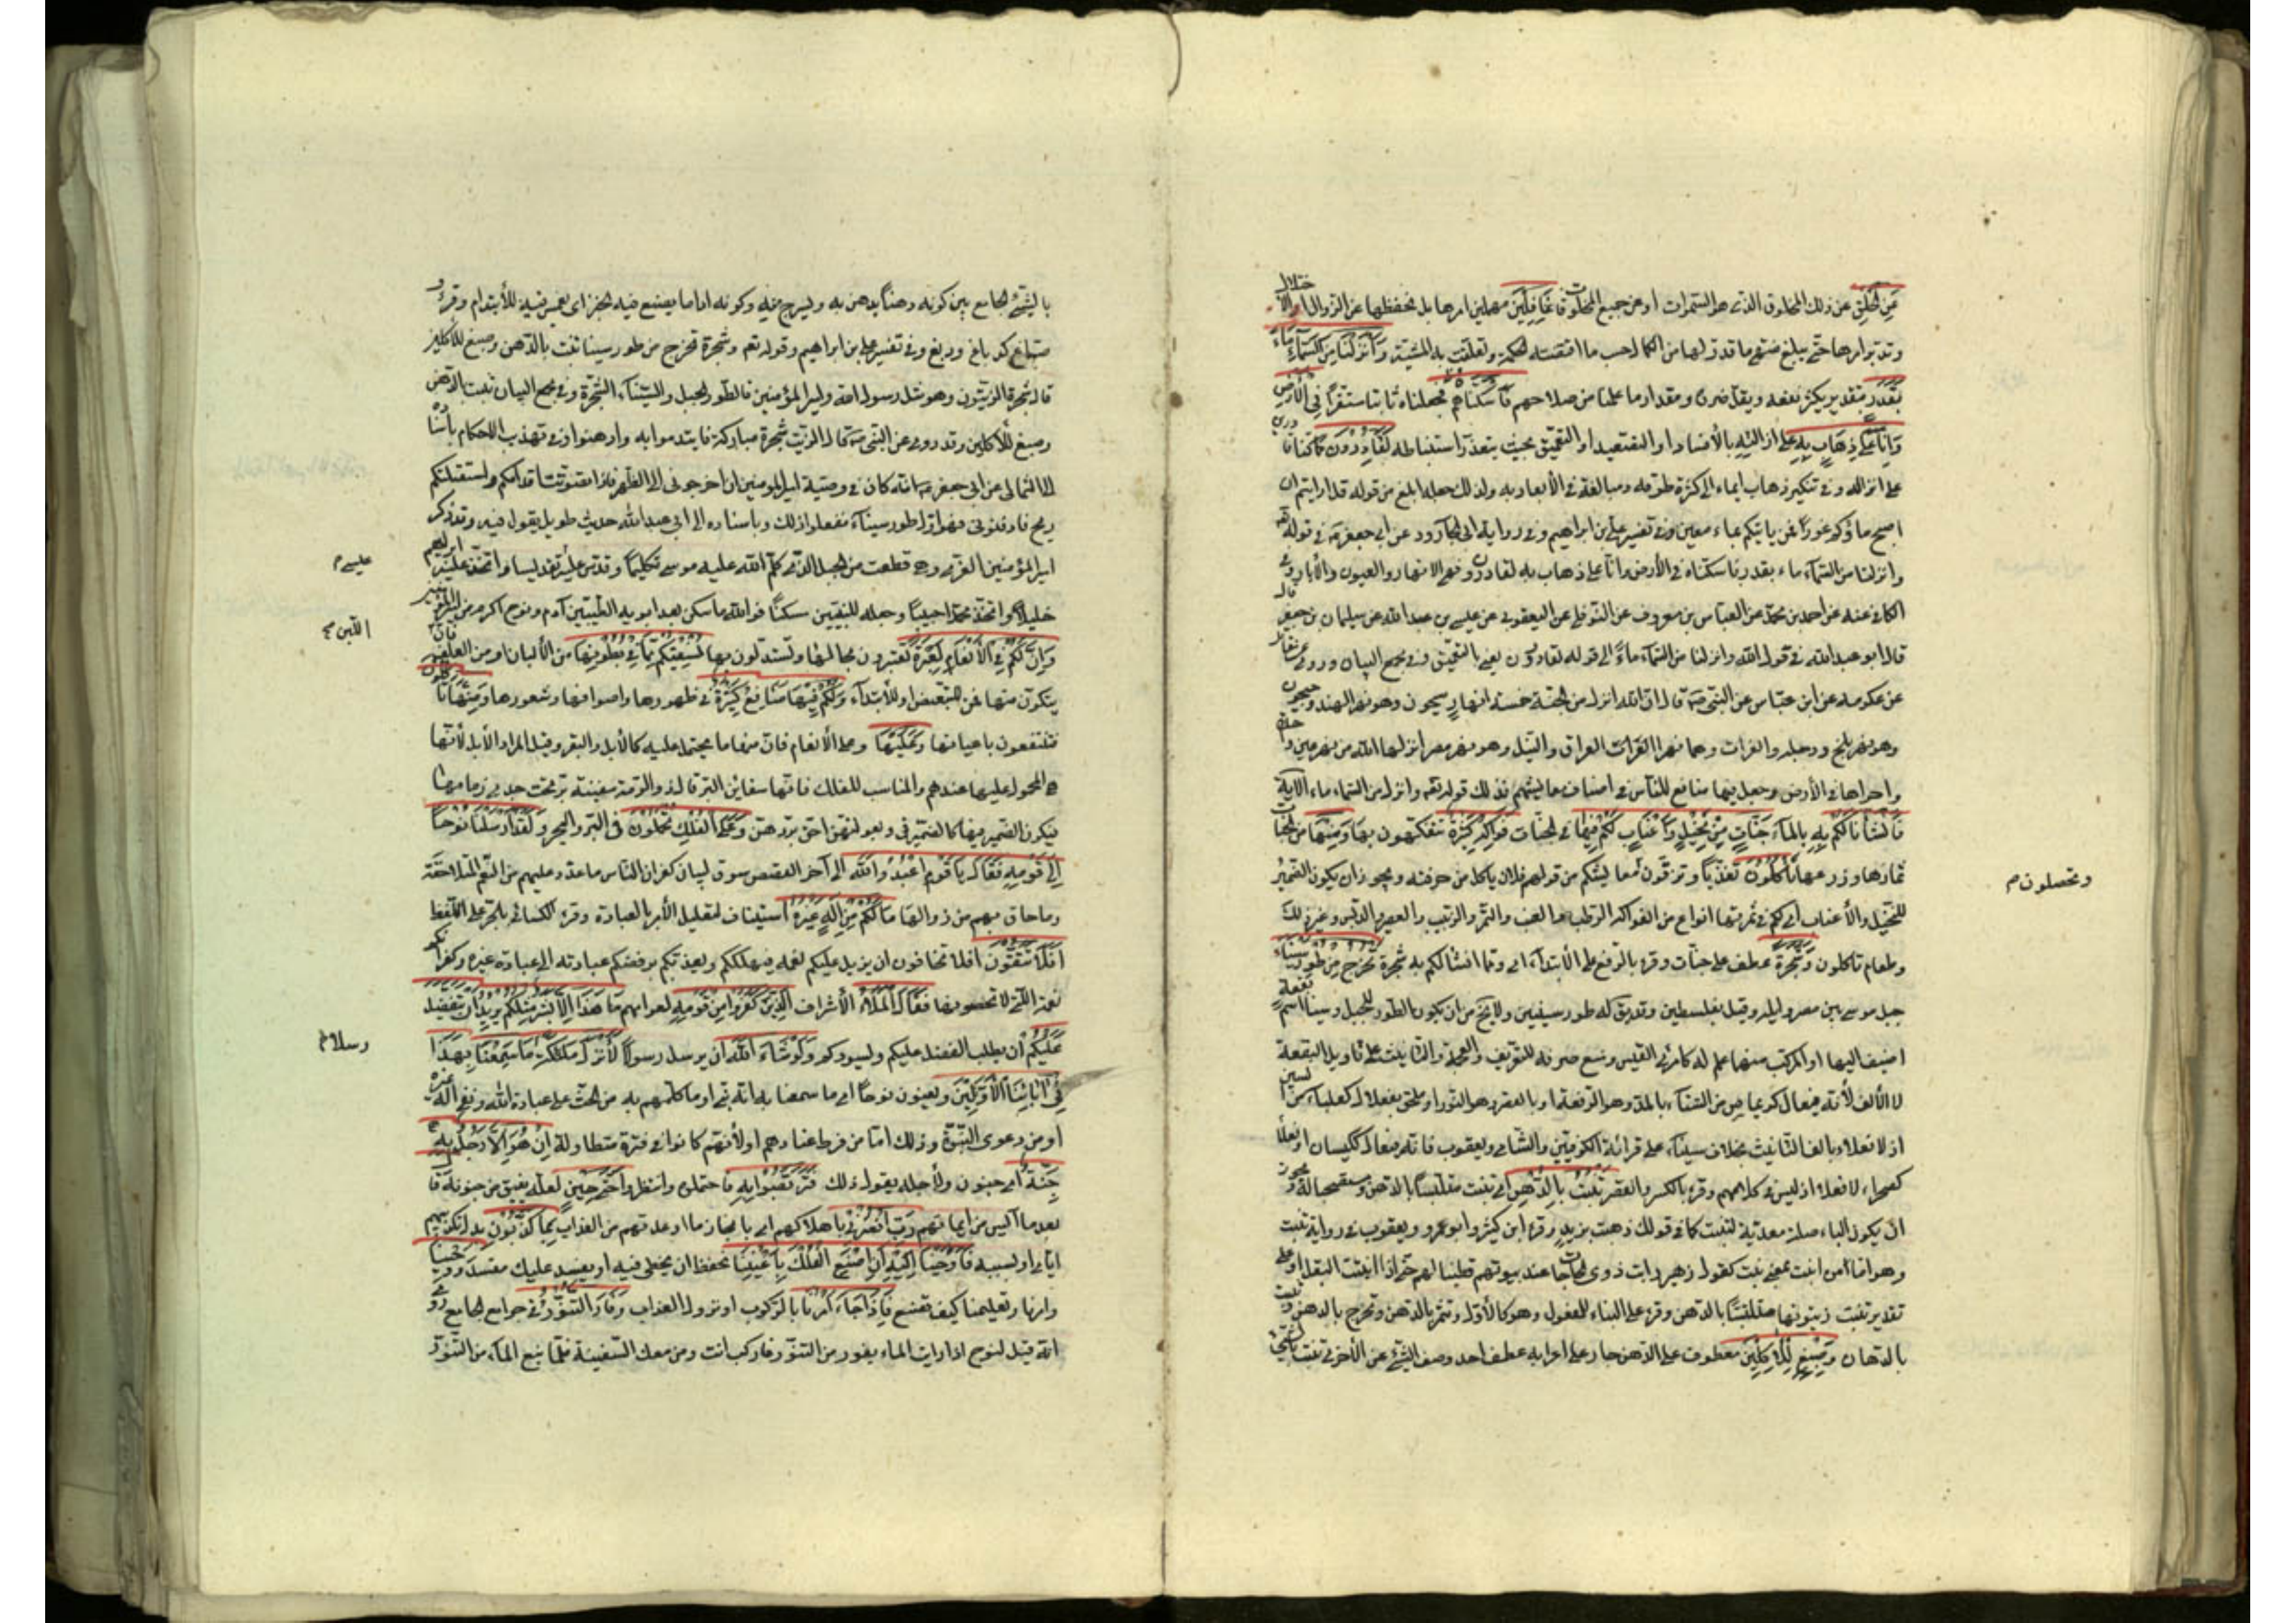 عَنِ الْخَلْقِ عن ذلك المخلوق الذي هو السموات او عن جميع المخلوقات غَافِلِينَ مهملين امرها بل نحفظها عن الزوال والاختلال
وتدبر امرها حتى يبلغ منتهى ما قدر لها من الكمال حسب ما اقتضته الحكمة وتعلقت به المشيئة وَأَنْزَلْنَا مِنَ السَّمَاءِ مَاءً
بِقَدَرٍ بتقدير يكثر نفعه ويقل ضرره ومقدار ما علمنا من صلاحهم فَأَسْكَنَّاهُ فجعلناه ثابتا مستقرا فِي الْأَرْضِ
وَإِنَّا عَلَى ذَهَابٍ بِهِ على ازالته بالافساد او التصعيد او التعميق بحيث يتعذر استنباطه لَقَادِرُونَ كما كنا قادرين
على انزاله وفي تنكير ذهاب ايماء الى كثرة طرقه ومبالغة في الأبعاد به ولذلك جعله ابلغ من قوله قل ارايتم ان
اصبح ماؤكم غورا فمن ياتيكم بماء معين وفي تفسير علي بن ابراهيم وفي رواية ابي الجارود عن ابي جعفر في قوله
وانزلنا من السماء ماء بقدر فاسكناه في الأرض وانا على ذهاب به لقادرون فهي الانهار والعيون والأبار وفي
الكافي عنه عن احمد بن محمد عن العباس بن معروف عن النوفلي عن اليعقوبي عن عيسى بن عبد الله عن سليمان بن جعفر قال
قال ابو عبد الله في قول الله وانزلنا من السماء ماءً الى قوله لقادرون يعني بالتعميق وفي مجمع البيان وروى مقاتل
عن عكرمه عن ابن عباس عن النبي ص قال ان الله انزل من الجنة خمسة انهار سيحون وهو نهر الهند وجيحون
وهو نهر بلخ ودجله والفرات وهما نهرا العراق والنيل وهو نهر مصر انزلها الله من عين واحدة
واجراها في الأرض وجعل فيها منافع للناس في اصناف معايشهم فذلك قوله تعم وانزلنا من السماء ماء الآية
فَأَنْشَأْنَا لَكُمْ بِهِ بالماء جَنَّاتٍ مِنْ نَخِيلٍ وَأَعْنَابٍ لَكُمْ فِيهَا في الجنات فَوَاكِهُ كَثِيرَةٌ تتفكهون بها وَمِنْهَا من الجنات
ثمارها وزروعها تَأْكُلُونَ تغذيا وترزقون معايشكم من قولهم فلان ياكل من حرفته ويجوز ان يكون الضمير
وتحصلون م
للنخيل والأعناب اي لكم في ثمرتها انواع من الفواكه الرطب والعنب والتمر والزبيب والعصير والدبس وغير ذلك
وطعام تاكلون وَشَجَرَةً عطف على جنات وقرء بالرفع على الأبتداء اي ومما انشانا لكم به شجرة تَخْرُجُ مِنْ طُورِ سَيْنَاءَ
جبل موسى بين مصر وايله وقيل بفلسطين وقد يقال له طور سينين ولا يخ من ان يكون الطور للجبل وسينا اسم بقعة
اضيف اليها او المركب منهما علم له كامرئ القيس ومنع صرفه للتعريف والعجمة والتانيث على تاويل البقعة
لا الألف لأنه فيعال كديماس من السناء بالمد وهو الرفعة او بالقصر وهو النور او ملحق بفعلال كعلباء من السين
اذ لا فعلاء بالف التانيث بخلاف سيناء على قرائة الكوفيين والشامي ويعقوب فانه فيعال ككيسان او فعلاء
كصحراء لا فعلال اذ ليس في كلامهم وقرء بالكسر والقصر تَنْبُتُ بِالدُّهْنِ اي تنبت متلبسا بالدهن ومستصحبا له ويجوز
ان يكون الباء صلة معدية لتنبت كما في قولك ذهبت بزيد وقرء ابن كثير وابو عمرو ويعقوب في رواية تنبت
وهو اما من انبت بمعنى نبت كقول زهير رايت ذوي الحاجات عند بيوتهم قطينا لهم حتى اذا انبت البقل او على
تقدير تنبت زيتونها متلبسًا بالدهن وقرء على البناء للمفعول وهو كالأول وتثمر بالدهن وتخرج بالدهن وتنبت
بالدهان وَصِبْغٍ لِلْآكِلِينَ معطوف على الدهن جار على اعرابه عطف احد وصفي الشيء على الأخر اي تنبت بالشيء
بالشيء الجامع بين كونه دهنًا يدهن به ويسرج منه وكونه اداما يصبغ فيه الخبز اي يغمس فيه للأيتدام وقرء و
صباغ كدباغ ودبغ وفي تفسير علي بن ابراهيم وقوله تعم وشجرة تخرج من طور سيناء تنبت بالدهن وصبغ للآكلين
قال شجرة الزيتون وهو مثل رسول الله وامير المؤمنين فالطور الجبل والسيناء الشجرة وفي مجمع البيان تنبت بالدهن
وصبغ للآكلين وقد روي عن النبي ص انه قال الزيت شجرة مباركة فايتدموا به وادهنوا وفي تهذيب الاحكام باسناده
الى الثمالي عن ابي جعفر ع انه كان في وصية امير المؤمنين ان اخرجوني الى الظهر فاذا تصوبت اقدامكم واستقبلتكم
ريح فادفنوني فهو اول طور سيناء ففعلوا ذلك وباسناده الى ابي عبد الله حديث طويل يقول فيه وقد ذكر
امير المؤمنين الغري وهي قطعت من الجبل الذي كلم الله عليه موسى تكليما وقدس عليه تقديسا واتخذ عليه ابراهيم
عيسى م
خليلا واتخذ محمدا حبيبًا وجعله للنبيين مسكنًا فوالله ما سكن بعد ابويه الطيبين آدم ونوح اكرم من امير المؤمنين
وَإِنَّ لَكُمْ فِي الْأَنْعَامِ لَعِبْرَةً تعتبرون بحالها وتستدلون بها نُسْقِيكُمْ مِمَّا فِي بُطُونِهَا من الألبان او من العلف فان
اللبن م
يتكون منها فمن للتبعيض او للأبتداء وَلَكُمْ فِيهَا مَنَافِعُ كَثِيرَةٌ في ظهورها واصوافها وشعورها وَمِنْهَا تَأْكُلُونَ
فتنتفعون باعيانها وَعَلَيْهَا وعلى الأنعام فان منها ما يحتمل عليه كالأبل والبقر وقيل المراد الأبل لأنها
هي المحمول عليها عندهم والمناسب للفلك فانها سفاين البر قال ذو الرمة سفينة بر تحت خدي زمامها
فيكون الضمير فيها كالضمير في وبعولتهن احق بردهن وَعَلَى الْفُلْكِ تُحْمَلُونَ في البر والبحر وَلَقَدْ أَرْسَلْنَا نُوحًا
إِلَى قَوْمِهِ فَقَالَ يَا قَوْمِ اعْبُدُوا اللَّهَ الى آخر القصص مسوق لبيان كفران الناس ما عدد عليهم من النعم المتلاحقة
وما حاق بهم من زوالها مَا لَكُمْ مِنْ إِلَهٍ غَيْرُهُ استيناف لتعليل الأمر بالعبادة وقرء الكسائي بالجر على اللفظ
أَفَلَا تَتَّقُونَ افلا تخافون ان يزيل عليكم نعمه فيهلككم ويعذبكم برفضكم عبادته الى عبادة غيره وكفرانكم
نعمه التي لا تحصونها فَقَالَ الْمَلَأُ الأشراف الَّذِينَ كَفَرُوا مِنْ قَوْمِهِ لعوامهم مَا هَذَا إِلَّا بَشَرٌ مِثْلُكُمْ يُرِيدُ أَنْ يَتَفَضَّلَ
عَلَيْكُمْ أن يطلب الفضل عليكم ويسودكم وَلَوْ شَاءَ اللَّهُ ان يرسل رسولًا لَأَنْزَلَ مَلَائِكَةً مَا سَمِعْنَا بِهَذَا
رسلا م
فِي آبَائِنَا الْأَوَّلِينَ ويعنون نوحًا اي ما سمعنا به انه نبي او ما كلمهم به من الحث على عبادة الله ونفي اله غيره
او من دعوى النبوة وذلك اما من فرط عنادهم او لأنهم كانوا في فترة متطاولة إِنْ هُوَ إِلَّا رَجُلٌ بِهِ
جِنَّةٌ اي جنون ولأجله يقول ذلك فَتَرَبَّصُوا بِهِ فاحتملوه وانتظروا حَتَّى حِينٍ لعله يفيق من جنونه قَالَ
بعد ما ايس من ايمانهم رَبِّ انْصُرْنِي باهلاكهم اي بانجاز ما اوعدتهم من العذاب بِمَا كَذَّبُونِ بدل تكذيبهم
اياي او بسببه فَأَوْحَيْنَا إِلَيْهِ أَنِ اصْنَعِ الْفُلْكَ بِأَعْيُنِنَا بحفظنا ان يخطى فيه او يفسد عليك مفسد وَوَحْيِنَا
وامرنا وتعليمنا كيف تصنع فَإِذَا جَاءَ أَمْرُنَا بالركوب او نزول العذاب وَفَارَ التَّنُّورُ في جوامع الجامع روي
انه قيل لنوح اذا رايت الماء يفور من التنور فاركب انت ومن معك السفينة فلما نبع الماء من التنور